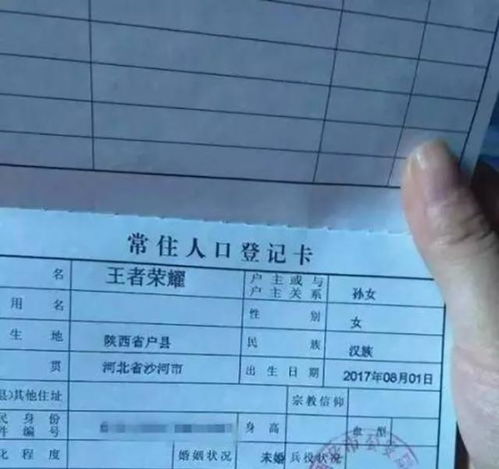 常住人口登记卡
名 王者荣耀 户主或与户主关系 孙女
用名 性别 女
生地 陕西省户县 民族 汉族
贯 河北省沙河市 出生日期 2017年08月01日
县)其他住址 宗教信仰
民身份件编号 身高 血型
化程度 婚姻状况 未婚 兵役状况